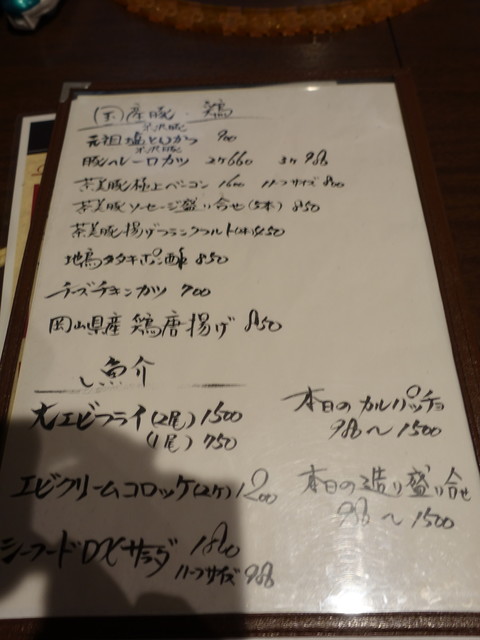 国産豚・鶏
米沢豚
元祖塩とんかつ 900
米沢豚
豚ヒレ一口カツ 2ケ660 3ケ980
茶美豚極上ベーコン 1600 ハーフサイズ 800
茶美豚ソーセージ盛り合せ(5本) 850
茶美豚揚げフランクフルト
地鳥タタキポン酢 850
チーズチキンカツ 900
岡山県産 鶏唐揚げ 850
魚介
大エビフライ(2尾) 1500
(1尾) 750
本日のカルパッチョ
980〜1500
エビクリームコロッケ(2ケ) 1200
本日の造り盛り合せ
980〜1500
シーフードDXサラダ 1800
ハーフサイズ 980